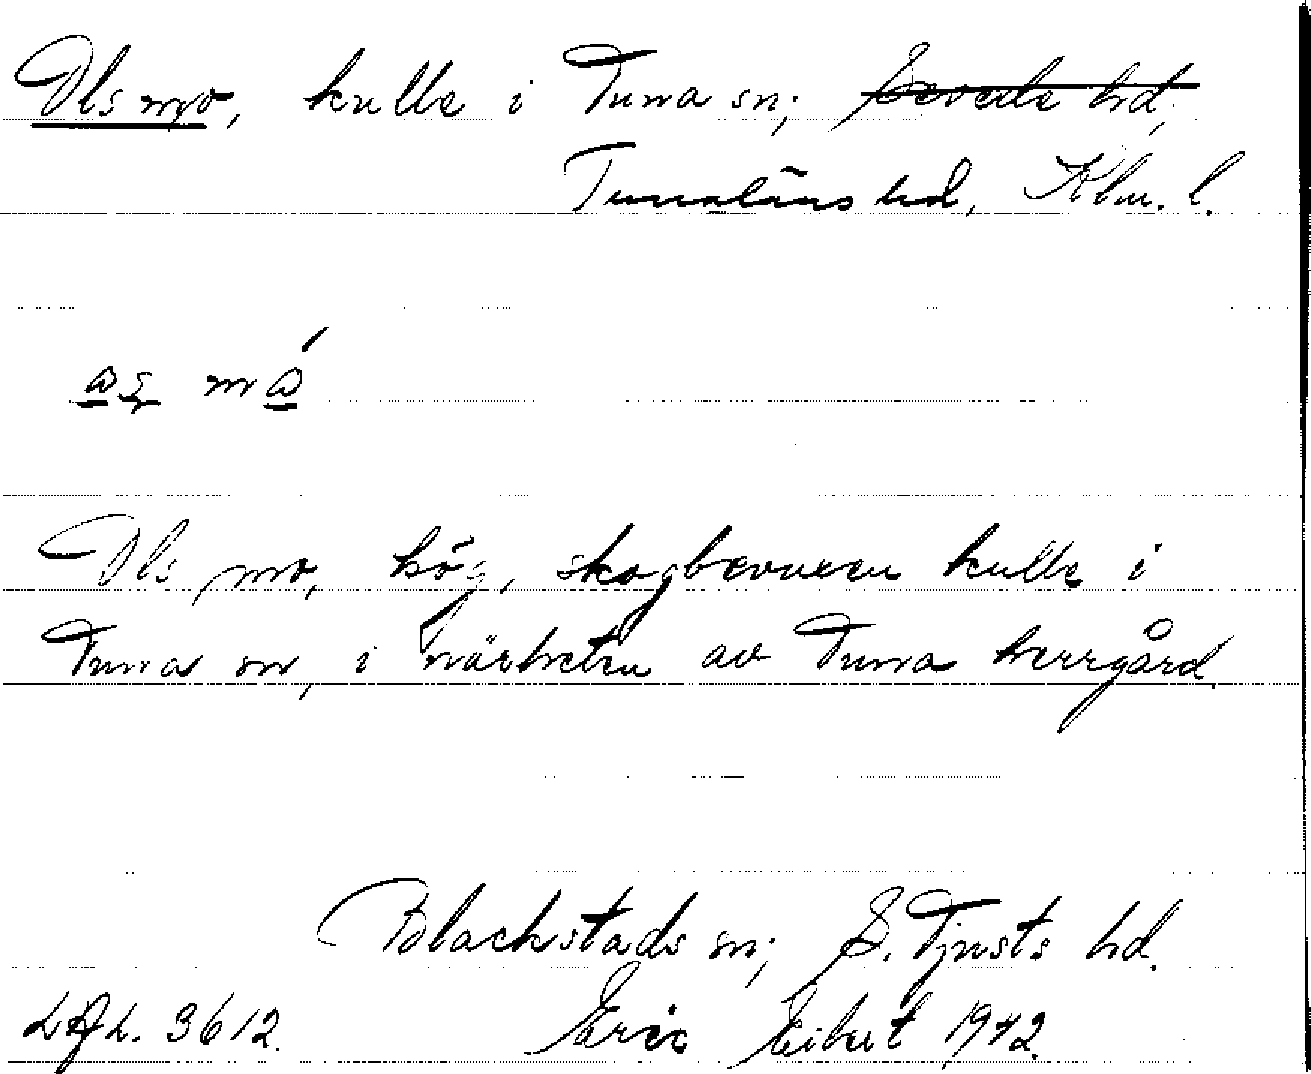 Ols mo, kulle i Tuna sn; Sevede hd,
Tunaläns hd, Klm. l.
Ols mo, hög, skogbevuxen kulle i
Tuna sn, i närheten av Tuna herrgård.
Blackstads sn; S. Tjusts hd.
3612. Eric Eibert 1942